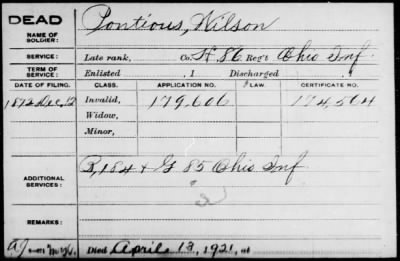 DEAD
NAME OF SOLDIER: Pontious, Wilson
SERVICE: Late rank, Co. H, 86 Reg't Ohio Inf.
TERM OF SERVICE: Enlisted , 1 Discharged , 1
DATE OF FILING. CLASS. APPLICATION NO. LAW. CERTIFICATE NO.
1872 Dec. 12 Invalid, 179,606 174,564
Widow,
Minor,
ADDITIONAL SERVICES: B, 184 & G 85 Ohio Inf
REMARKS:
Died April 13, 1921, at